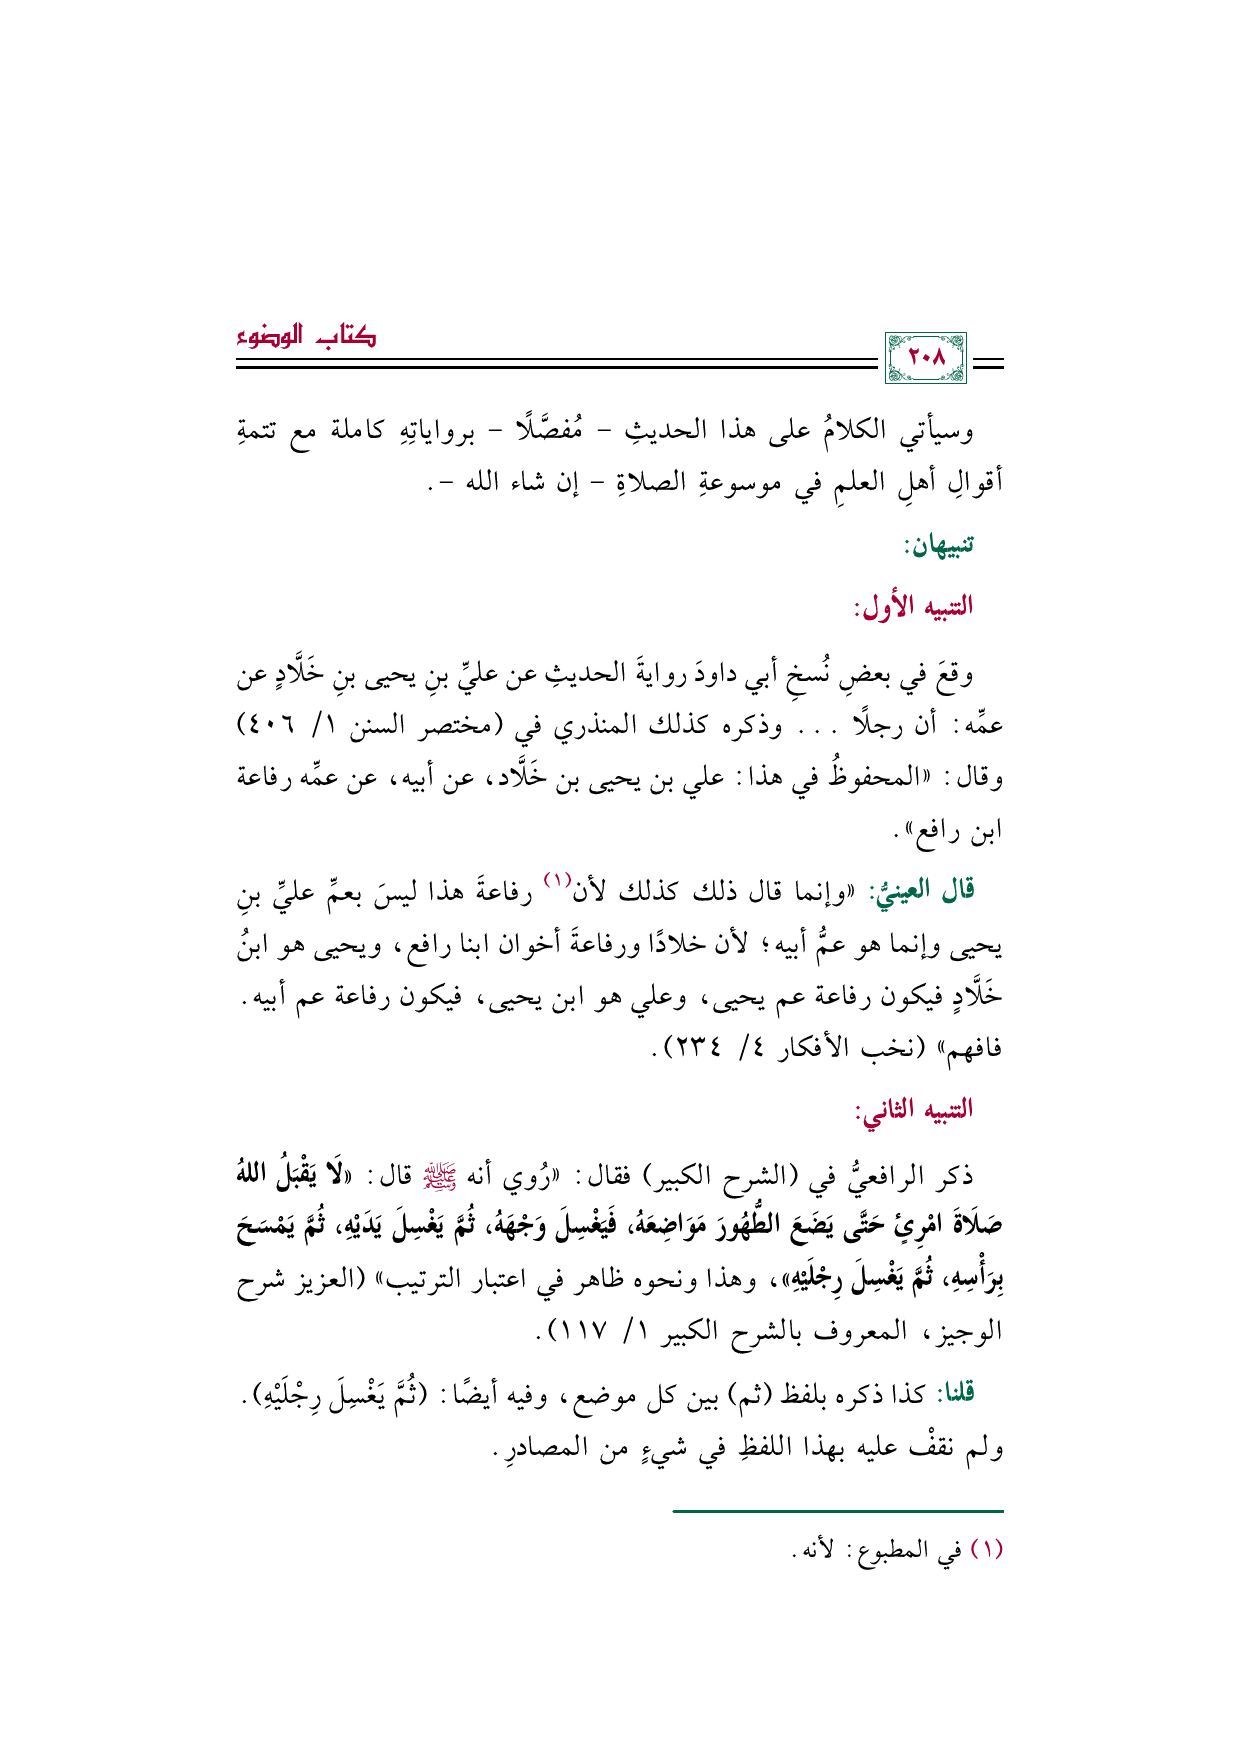 كتاب الوضوء
٢٠٨
وسيأتي الكلامُ على هذا الحديثِ – مُفصَّلًا – برواياتِهِ كاملة مع تتمةِ
أقوالِ أهلِ العلمِ في موسوعةِ الصلاةِ – إن شاء الله –.
تنبيهان:
التنبيه الأول:
وقعَ في بعضِ نُسخِ أبي داودَ روايةَ الحديثِ عن عليِّ بنِ يحيى بنِ خَلَّادٍ عن
عمِّه: أن رجلًا ... وذكره كذلك المنذري في (مختصر السنن ١/ ٤٠٦)
وقال: «المحفوظُ في هذا: علي بن يحيى بن خَلَّاد، عن أبيه، عن عمِّه رفاعة
ابن رافع».
قال العينيُّ: «وإنما قال ذلك كذلك لأن(١) رفاعةَ هذا ليسَ بعمِّ عليِّ بنِ
يحيى وإنما هو عمُّ أبيه؛ لأن خلادًا ورفاعةَ أخوان ابنا رافع، ويحيى هو ابنُ
خَلَّادٍ فيكون رفاعة عم يحيى، وعلي هو ابن يحيى، فيكون رفاعة عم أبيه.
فافهم» (نخب الأفكار ٤/ ٢٣٤).
التنبيه الثاني:
ذكر الرافعيُّ في (الشرح الكبير) فقال: «رُوي أنه ﷺ قال: «لَا يَقْبَلُ اللهُ
صَلَاةَ امْرِئٍ حَتَّى يَضَعَ الطُّهُورَ مَوَاضِعَهُ، فَيَغْسِلَ وَجْهَهُ، ثُمَّ يَغْسِلَ يَدَيْهِ، ثُمَّ يَمْسَحَ
بِرَأْسِهِ، ثُمَّ يَغْسِلَ رِجْلَيْهِ»، وهذا ونحوه ظاهر في اعتبار الترتيب» (العزيز شرح
الوجيز، المعروف بالشرح الكبير ١/ ١١٧).
قلنا: كذا ذكره بلفظ (ثم) بين كل موضع، وفيه أيضًا: (ثُمَّ يَغْسِلَ رِجْلَيْهِ).
ولم نقفْ عليه بهذا اللفظِ في شيءٍ من المصادرِ.
(١) في المطبوع: لأنه.